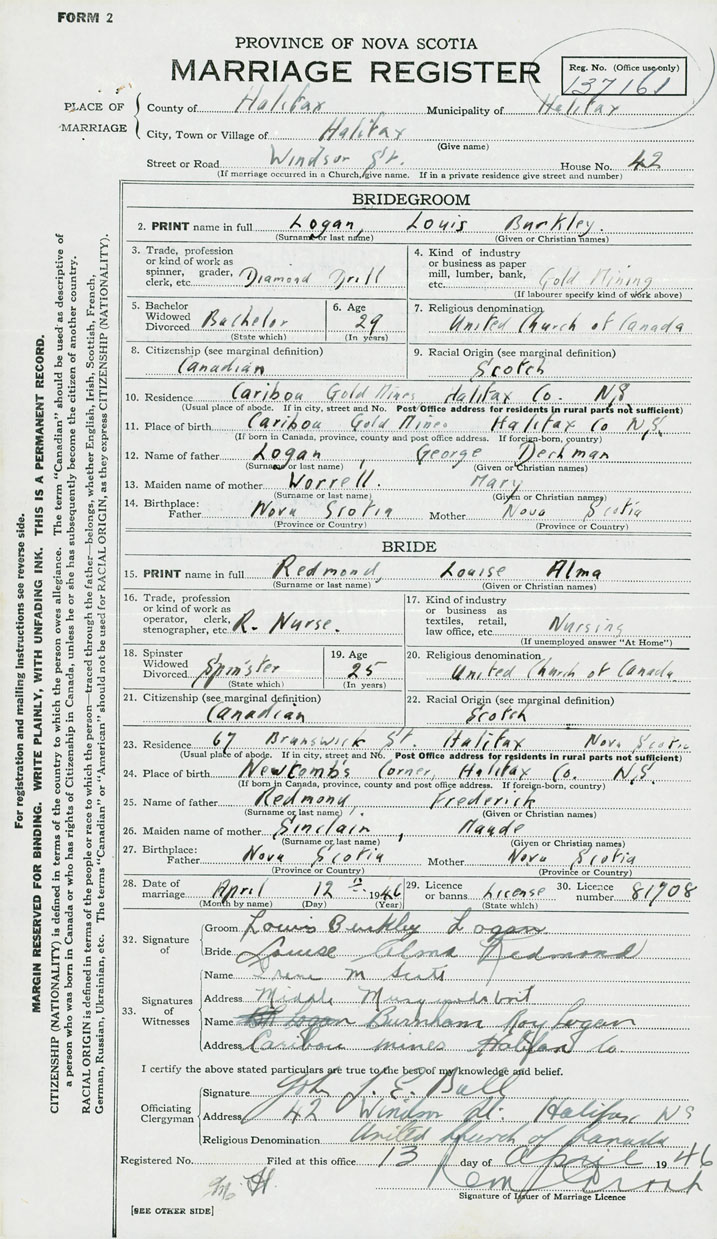 FORM 2
PROVINCE OF NOVA SCOTIA
MARRIAGE REGISTER
Reg. No. (Office use only)
137161
PLACE OF MARRIAGE
County of Halifax Municipality of Halifax
City, Town or Village of Halifax
(Give name)
Street or Road Windsor St. House No. 42
(If marriage occurred in a Church, give name. If in a private residence give street and number)
BRIDEGROOM
2. PRINT name in full Logan, Louis Burkley.
(Surname or last name) (Given or Christian names)
3. Trade, profession or kind of work as spinner, grader, clerk, etc. Diamond Drill
4. Kind of industry or business as paper mill, lumber, bank, etc. Gold Mining
(If labourer specify kind of work above)
5. Bachelor Widowed Divorced Bachelor
(State which)
6. Age 29
(In years)
7. Religious denomination
United Church of Canada
8. Citizenship (see marginal definition)
Canadian
9. Racial Origin (see marginal definition)
Scotch
10. Residence Caribou Gold Mines Halifax Co. N.S.
(Usual place of abode. If in city, street and No. Post Office address for residents in rural parts not sufficient)
11. Place of birth Caribou Gold Mines Halifax Co N.S.
(If born in Canada, province, county and post office address. If foreign-born, country)
12. Name of father Logan, George Dechman
(Surname or last name) (Given or Christian names)
13. Maiden name of mother Worrell. Mary
(Surname or last name) (Given or Christian names)
14. Birthplace: Father Nova Scotia Mother Nova Scotia
(Province or Country) (Province or Country)
BRIDE
15. PRINT name in full Redmond, Louise Alma
(Surname or last name) (Given or Christian names)
16. Trade, profession or kind of work as operator, clerk, stenographer, etc. R. Nurse.
17. Kind of industry or business as textiles, retail, law office, etc. Nursing
(If unemployed answer "At Home")
18. Spinster Widowed Divorced Spinster
(State which)
19. Age 25
(In years)
20. Religious denomination
United Church of Canada
21. Citizenship (see marginal definition)
Canadian
22. Racial Origin (see marginal definition)
Scotch
23. Residence 67 Brunswick St. Halifax Nova Scotia
(Usual place of abode. If in city, street and No. Post Office address for residents in rural parts not sufficient)
24. Place of birth Newcomb's Corner, Halifax Co. N.S.
(If born in Canada, province, county and post office address. If foreign-born, country)
25. Name of father Redmond, Frederick
(Surname or last name) (Given or Christian names)
26. Maiden name of mother Sinclair, Maude
(Surname or last name) (Given or Christian names)
27. Birthplace: Father Nova Scotia Mother Nova Scotia
(Province or Country) (Province or Country)
28. Date of marriage April 12th 1946
(Month by name) (Day) (Year)
29. Licence or banns License
(State which)
30. Licence number 81908
32. Signature of
Groom Louis Burkley Logan
Bride Louise Alma Redmond
33. Signatures of Witnesses
Name Irene M Scott
Address Middle Musquodoboit
Name Burnham Roy Logan
Address Caribou mines Halifax Co.
I certify the above stated particulars are true to the best of my knowledge and belief.
Officiating Clergyman
Signature John J. E. Bull
Address 42 Windsor St. Halifax, NS
Religious Denomination United Church of Canada
Registered No. Filed at this office 13 day of April 1946
Signature of Issuer of Marriage Licence
[SEE OTHER SIDE]
For registration and mailing instructions see reverse side.
MARGIN RESERVED FOR BINDING. WRITE PLAINLY, WITH UNFADING INK. THIS IS A PERMANENT RECORD.
CITIZENSHIP (NATIONALITY) is defined in terms of the country to which the person owes allegiance. The term "Canadian" should be used as descriptive of
a person who was born in Canada or who has rights of Citizenship in Canada, unless he or she has subsequently become the citizen of another country.
RACIAL ORIGIN is defined in terms of the people or race to which the person—traced through the father—belongs, whether English, Irish, Scottish, French,
German, Russian, Ukrainian, etc. The terms "Canadian" or "American" should not be used for RACIAL ORIGIN, as they express CITIZENSHIP (NATIONALITY).